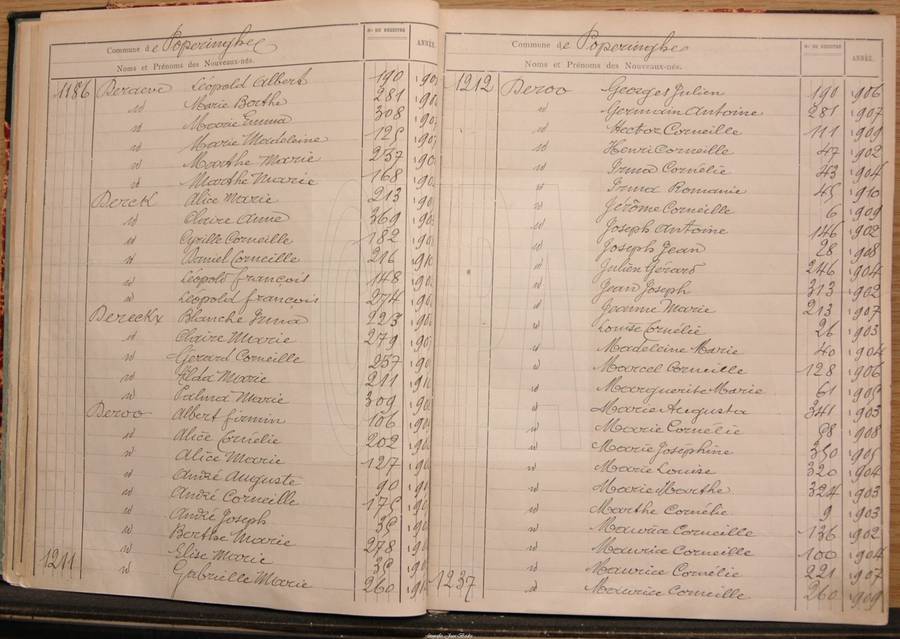 Commune de Poperinghe
Nos DE REGISTRE
ANNÉE
Noms et Prénoms des Nouveaux-nés.
1186 Deraeve Léopold Albert 190
id Marie Berthe 281
id Marie Emma 308
id Marie Madeleine 125
id Marthe Marie 237
id Marthe Marie 168
Derck Alice Marie 213
id Claire Anne 369
id Cyrille Corneille 182
id Daniel Corneille 216
id Léopold François 148
id Léopold François 274
Dereckx Blanche Irma 223
id Claire Marie 279
id Gérard Corneille 257
id Elda Marie 211
id Palma Marie 309
Deroo Albert Firmin 106
id Alice Cornélie 202
id Alice Marie 127
id André Auguste 90
id André Corneille 175
id André Joseph 35
id Berthe Marie 278
id Elise Marie 35
1211 id Gabrielle Marie 260
Commune de Poperinghe
Nos DE REGISTRE
ANNÉE.
Noms et Prénoms des Nouveaux-nés.
1212 Deroo Georges Julien 190 1906
id Germain Antoine 281 1907
id Hector Corneille 111 1909
id Henri Corneille 47 1902
id Irma Cornélie 43 1904
id Irma Romanie 45 1910
id Jérôme Corneille 6 1909
id Joseph Antoine 146 1902
id Joseph Jean 28 1908
id Julien Gérard 246 1904
id Jean Joseph 313 1902
id Jeanne Marie 213 1907
id Louise Cornélie 26 1903
id Madeleine Marie 40 1904
id Marcel Corneille 128 1906
id Marguerite Marie 61 1905
id Marie Augusta 341 1903
id Marie Cornélie 98 1908
id Marie Joséphine 350 1905
id Marie Louise 320 1904
id Marie Marthe 324 1903
id Marthe Cornélie 9 1903
id Maurice Corneille 136 1902
id Maurice Corneille 100 1904
id Maurice Cornélie 221 1907
1237 id Maurice Corneille 260 1909